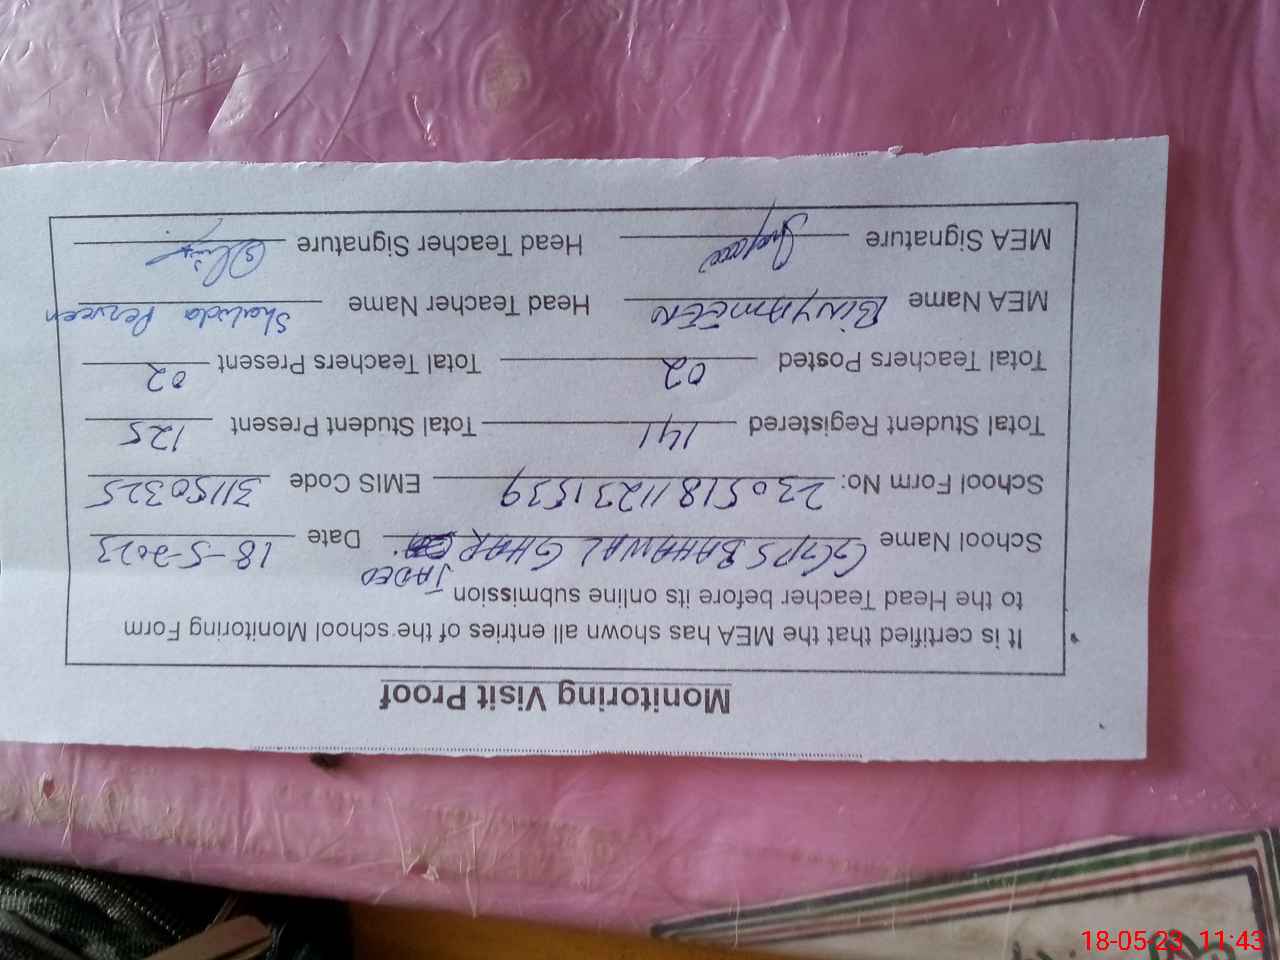 Monitoring Visit Proof
It is certified that the MEA has shown all entries of the school Monitoring Form
to the Head Teacher before its online submission
JADED
School Name GGPS BAHAWAL GHAR Date 18-5-2023
School Form No: 23051811231539 EMIS Code 31150325
Total Student Registered 141 Total Student Present 125
Total Teachers Posted 02 Total Teachers Present 02
MEA Name BINYAMEEN Head Teacher Name Shahida Perveen
MEA Signature Head Teacher Signature
18-05-23 11:43